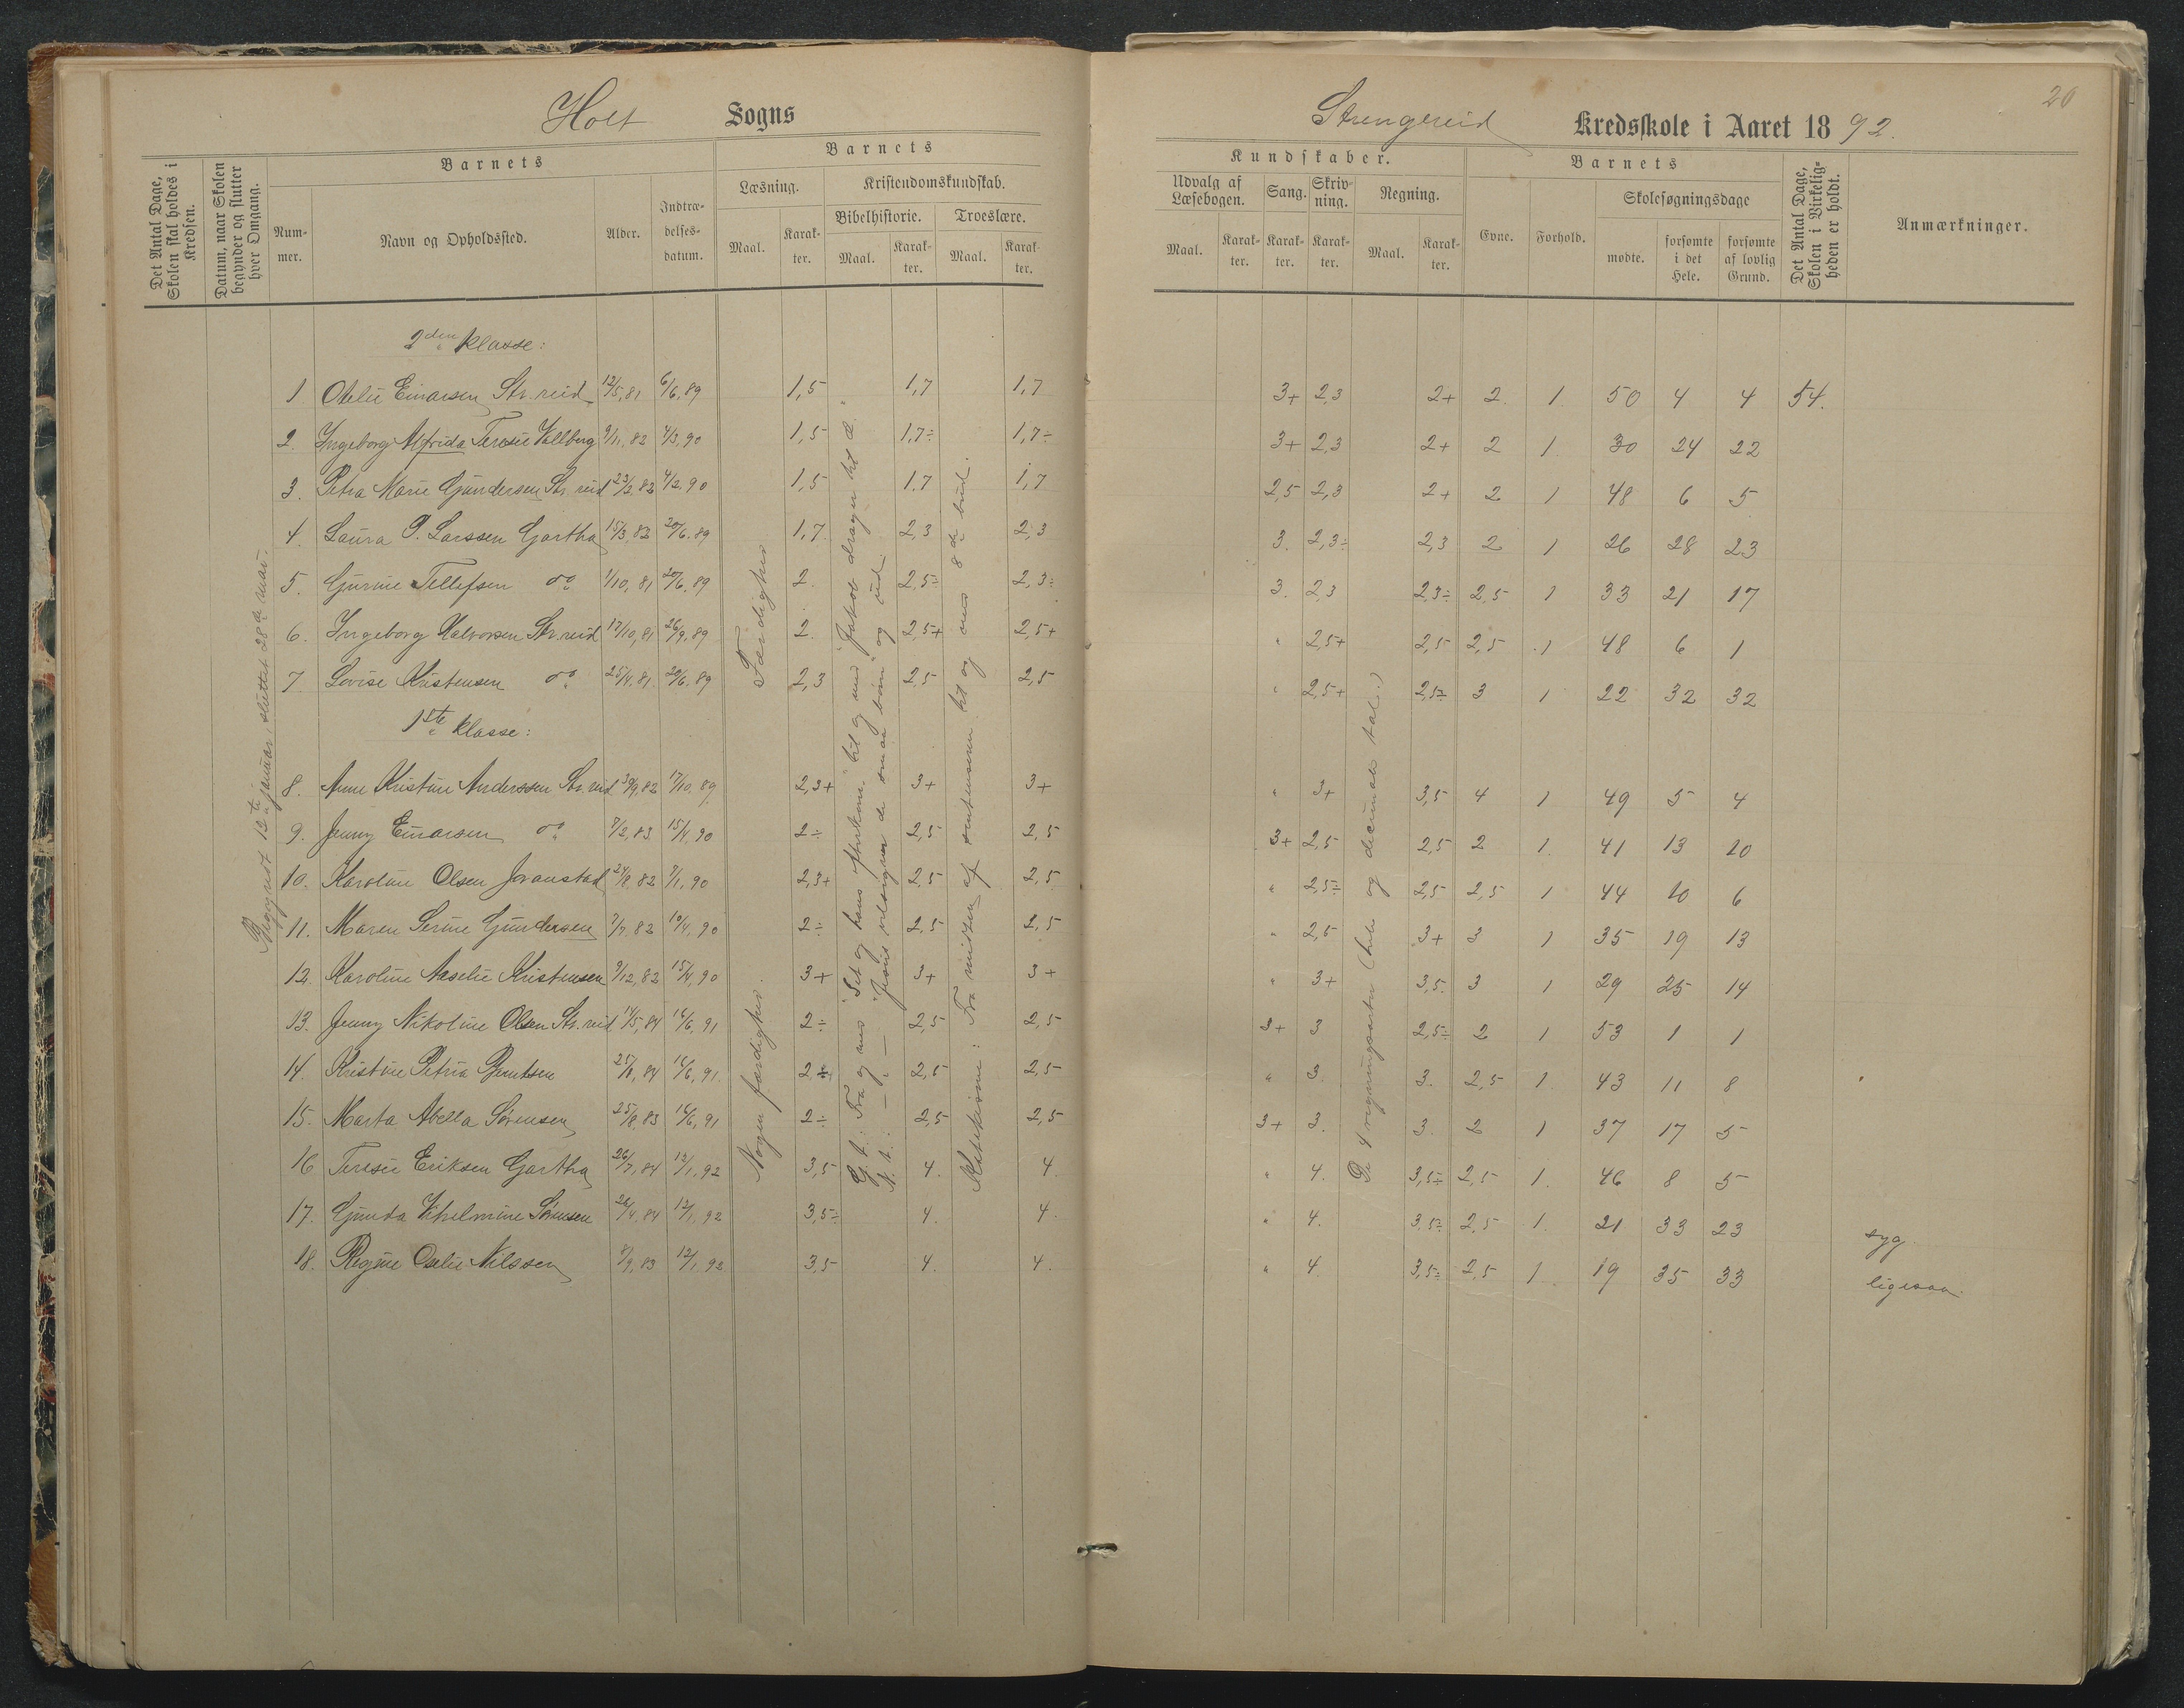 20
Holt Sogns
Strengereid Kredsskole i Aaret 1892.
Det Antal Dage, Skolen skal holdes i Kredsen.
Datum, naar Skolen begynder og slutter hver Omgang.
Barnets
Nummer.
Navn og Opholdssted.
Alder.
Indtrædelsesdatum.
Barnets
Læsning.
Kristendomskundskab.
Bibelhistorie.
Troeslære.
Maal. Karakter. Maal. Karakter. Maal. Karakter.
Kundskaber.
Udvalg af Læsebogen.
Sang.
Skrivning.
Regning.
Maal. Karakter. Karakter. Karakter. Maal. Karakter.
Barnets
Evne.
Forhold.
Skolesøgningsdage
mødte.
forsømte i det Hele.
forsømte af lovlig Grund.
Det Antal Dage, Skolen i Virkeligheden er holdt.
Anmærkninger.
Begyndt 12te januar, sluttet 28de mai.
2den klasse:
1 Otelie Einarsen Str.reid 12/5,81 6/6,89 1,5 1,7 1,7 3+ 2,3 2+ 2. 1. 50 4 4 54.
2. Ingeborg Alfrida Teresie Vallberg 9/11,82 4/3,90 1,5 1,7÷ 1,7÷ 3+ 2,3 2+ 2 1. 30 24 22
3. Petra Marie Gundersen Str.reid 23/2,82 4/2,90 1,5 1,7 1,7 2,5 2,3 2+ 2 1 48 6 5
4. Laura P. Larssen Gartha 15/3,82 20/6,89 1,7 2,3 2,3 3. 2,3÷ 2,3 2 1 26 28 23
5. Gurine Tellefsen do 1/10,81 20/6,89 2. 2,5÷ 2,3÷ 3. 2,3 2,3÷ 2,5 1 33 21 17
6. Ingeborg Halvorsen Str.reid 17/10,81 26/9,89 2. 2,5+ 2,5+ " 2,5+ 2,5 2,5 1 48 6 1
7 Lovise Kristensen do 25/4,81 20/6,89 2,3 2,5 2,5 " 2,5+ 2,5÷ 3 1 22 32 32
1ste klasse:
8. Anne Kristine Anderssen Str.reid 30/9,82 17/10,89 2,3+ 3+ 3+ " 3+ 3,5 4 1 49 5 4
9. Jenny Einarsen do 7/2,83 15/4,90 2÷ 2,5 2,5 3+ 2,5 2,5 2 1. 41 13 10
10. Karoline Olsen Joranstad 24/8,82 7/1,90 2,3+ 2,5 2,5 " 2,5÷ 2,5 2,5 1 44 10 6
11. Maren Serine Gundersen 7/7,82 10/4,90 2÷ 2,5 2,5 " 2,5 3+ 3 1 35 19 13
12. Karoline Aaselie Kristensen 9/12,82 15/4,90 3+ 3+ 3+ " 3+ 3,5. 3 1 29 25 14
13. Jenny Nikoline Olsen Str.reid 14/5,84 16/6,91 2÷ 2,5 2,5 3+ 3 2,5÷ 2 1 53 1 1
14. Kristine Petria Berntsen 25/8,84 16/6,91. 2÷ 2,5 2,5 " 3. 3. 2,5 1. 43 11 8
15. Marta Abella Sørensen 25/8,83 16/6,91 2÷ 2,5 2,5 3+ 3. 3. 2 1 37 17 5
16 Teresie Eriksen Gartha 26/7,84 12/1,92 3,5 4. 4 " 4. 3,5÷ 2,5 1. 46 8 5
17. Gunda Vilhelmine Sørensen 26/4,84 12/1,92 3,5÷ 4. 4. " 4. 3,5÷ 2,5 1. 21 33 23 syg.
18. Regine Oselie Nilssen 8/9,83 12/1,92 3,5 4. 4. " 4. 3,5÷ 2,5 1. 19 35 33 ligesaa.
Færdighed
Nogen færdighed.
G. t.: Fra og med "Set og hans afterkom." til og med "Jakob drager til Æ."
N. t.: — " — "Jesus velsigner de smaa børn" og ud.
Katekisme: Fra midten af sentensen til og med 8de bud.
De 4 regningsarter (hele og decimale tal.)